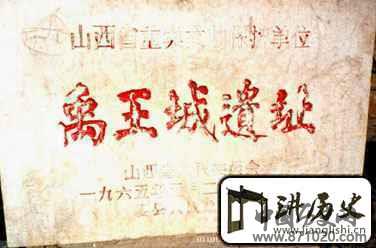 山西省重点文物保护单位
禹王城遗址
山西省人民委员会
一九六五年
讲历史
www.jianglishi.cn
www.871020.com